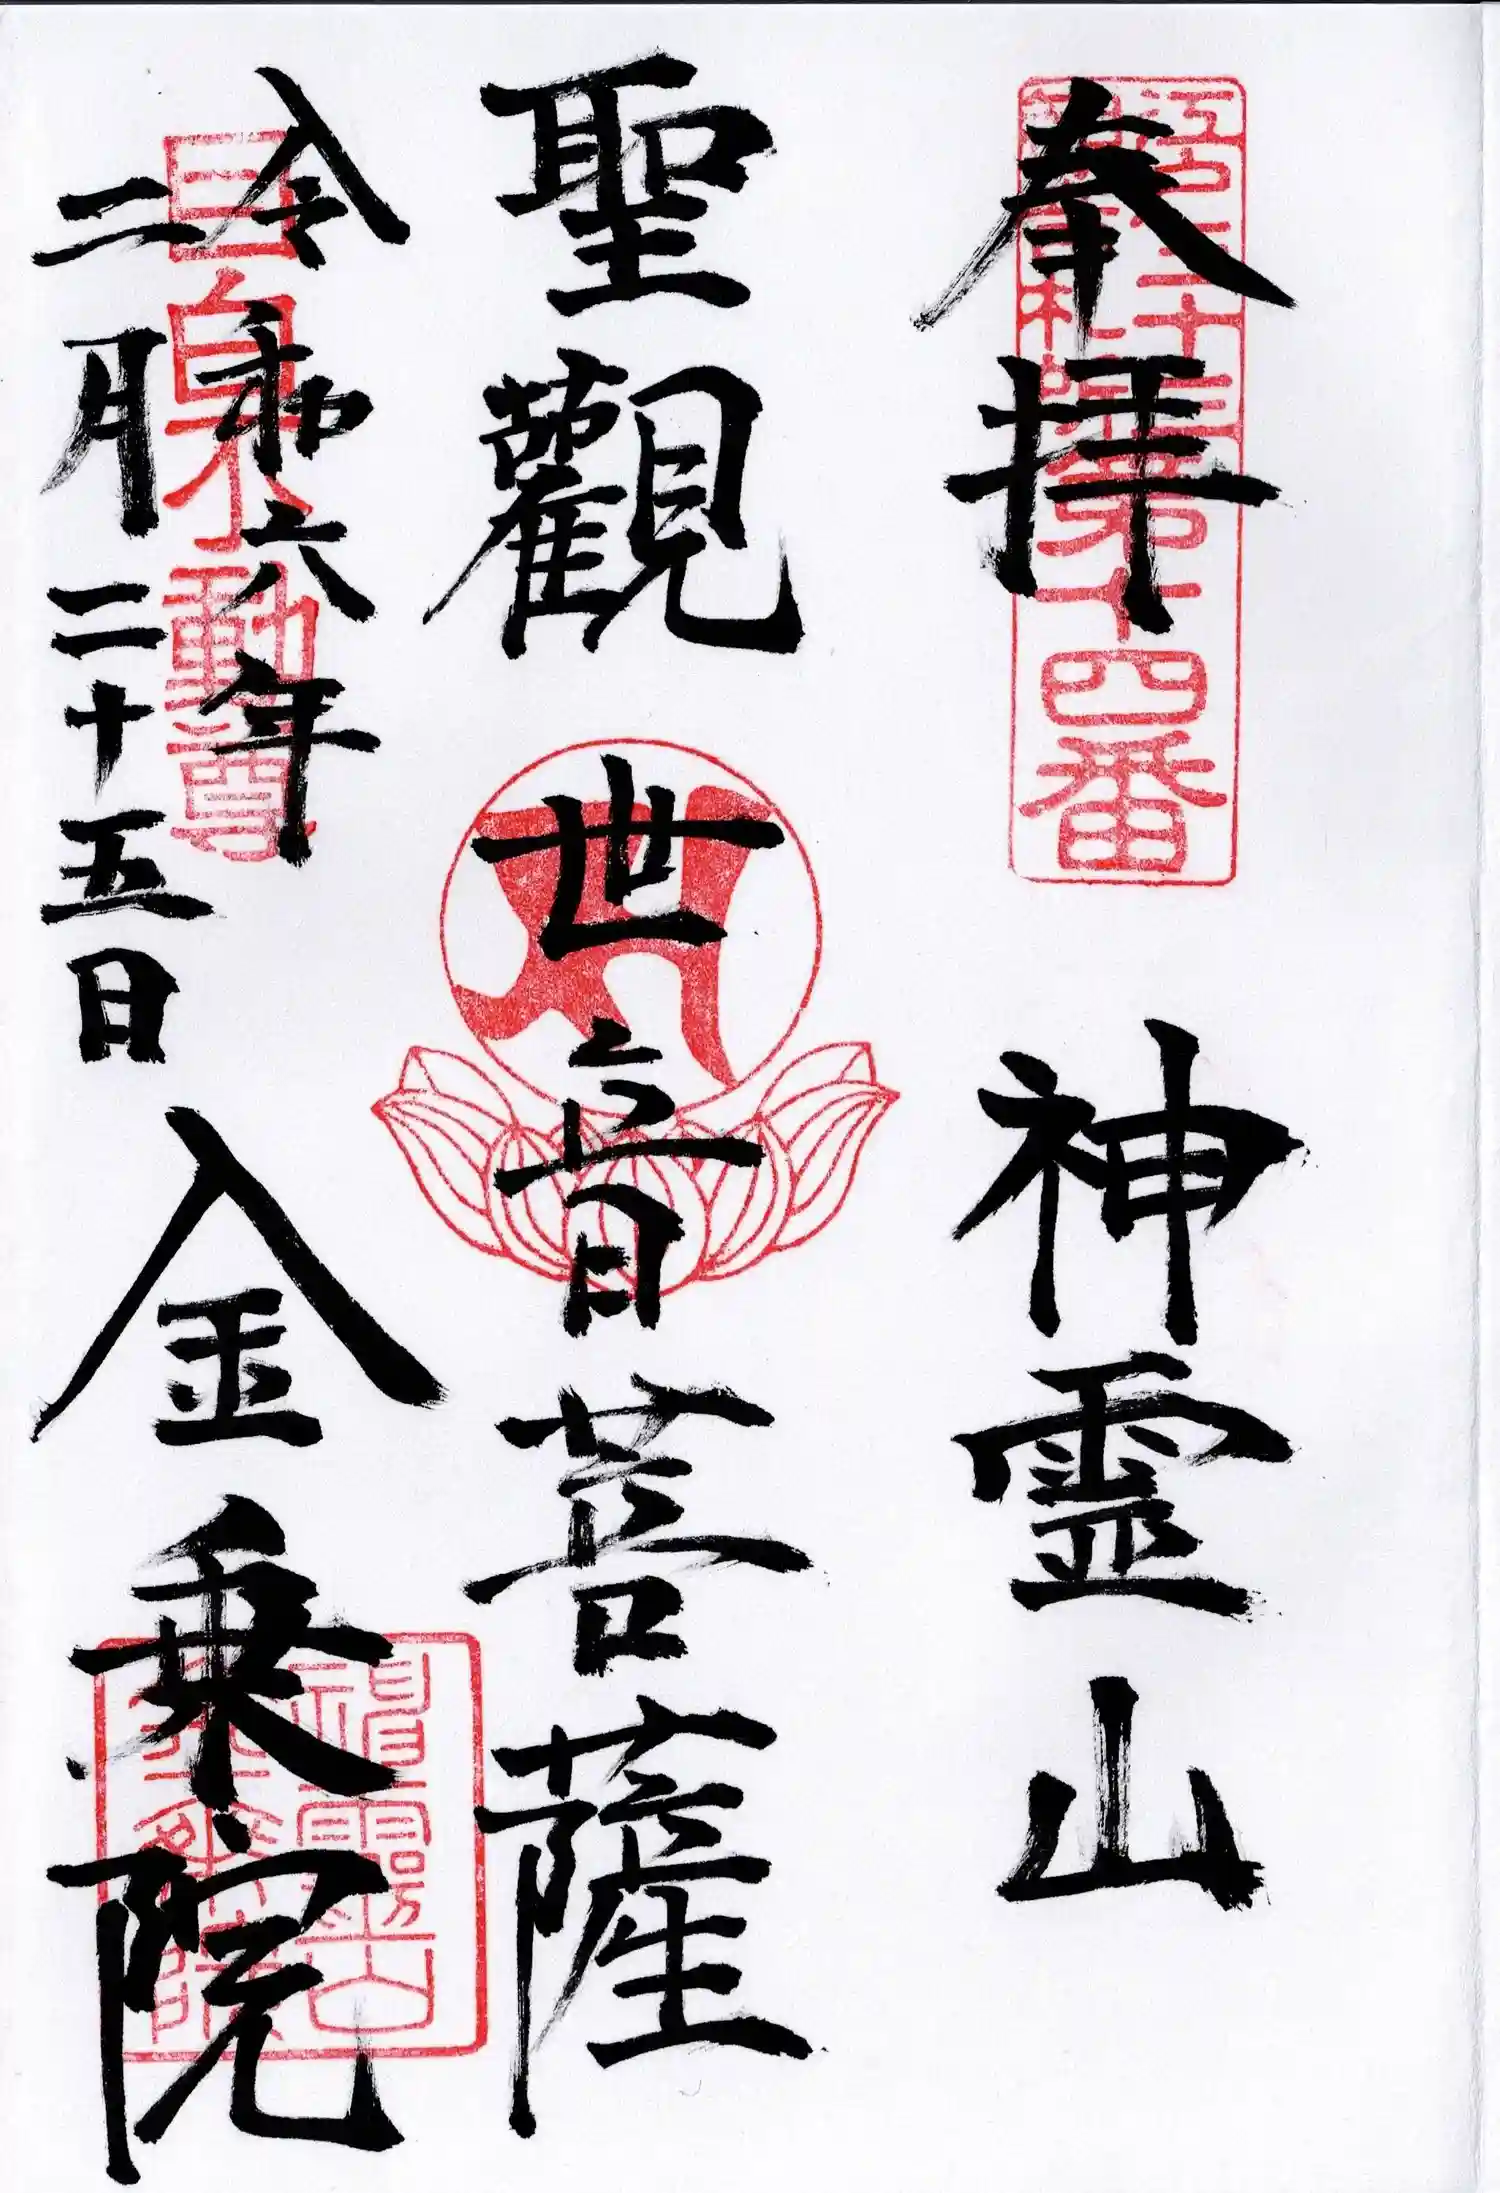 奉拝 神霊山
聖觀世音菩薩
令和六年
二月二十五日
金乗院
江戸三十三
観音札所第十四番
目白不動尊
神霊山
金乗院